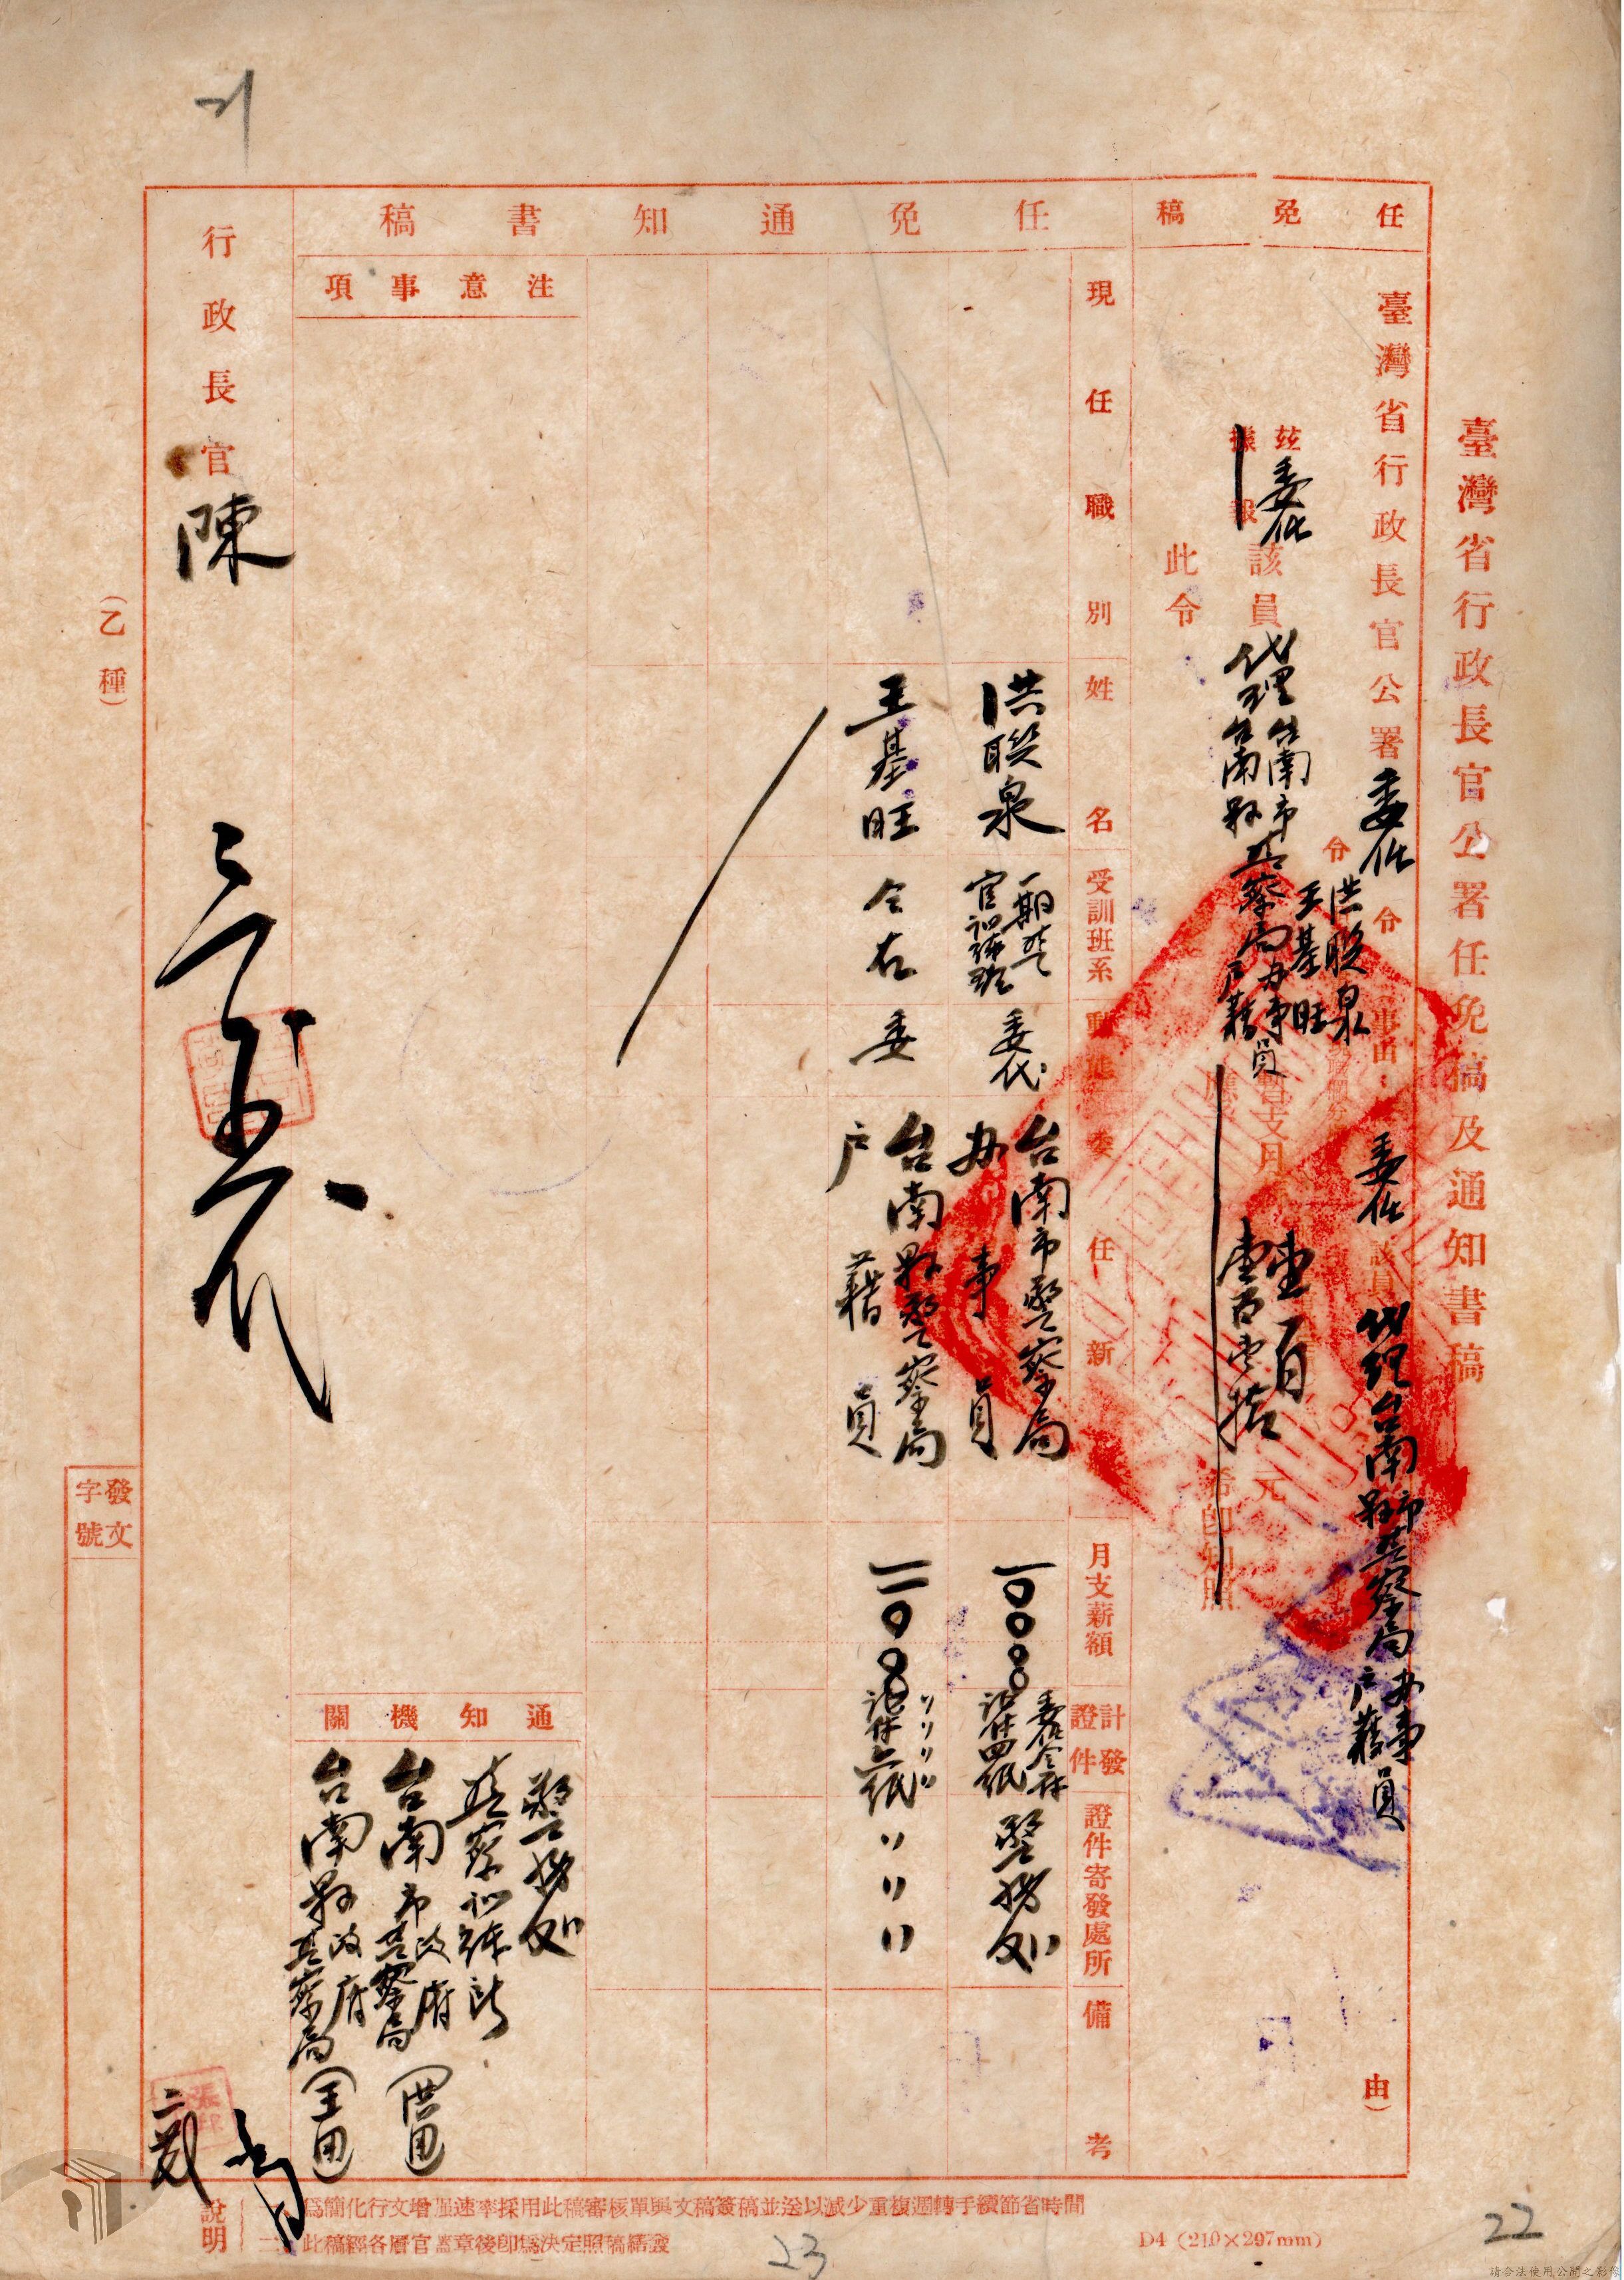 臺灣省行政長官公署任免稿及通知書稿
任免稿
臺灣省行政長官公署委任令(事由:委任該員代理台南市縣警察局办事户籍員由)
令洪聯泉
王基旺
茲委任該員代理台南市台南縣警察局办事户籍員暫支月薪壹百壹百壹拾元
據報
希即知照
此令
任免通知書稿
現任職別
姓名
受訓班系
動態
委任新
月支薪額
計發證件
證件寄發處所
備考
洪聯泉
一期警官訓練班
委代
台南市警察局
办事員
一〇〇〇〇
委任令一件
證件四紙
警務处
王基旺
仝右
委
台南縣警察局
户籍員
一一〇〇〇
〃〃〃〃
證件六紙
〃〃〃
注意事項
通知機關
警務处
警察訓練所
台南市政府警察局(洪用)
台南縣政府警察局(王用)
行政長官陳
(乙種)
發文字號
說明
一、為簡化行文增强速率採用此稿審核單與文稿簽稿並送以减少重複週轉手續節省時間
二、此稿經各層官蓋章後即為決定照稿繕發
D4(210×297mm)
21
22
23
請合法使用公開之影像